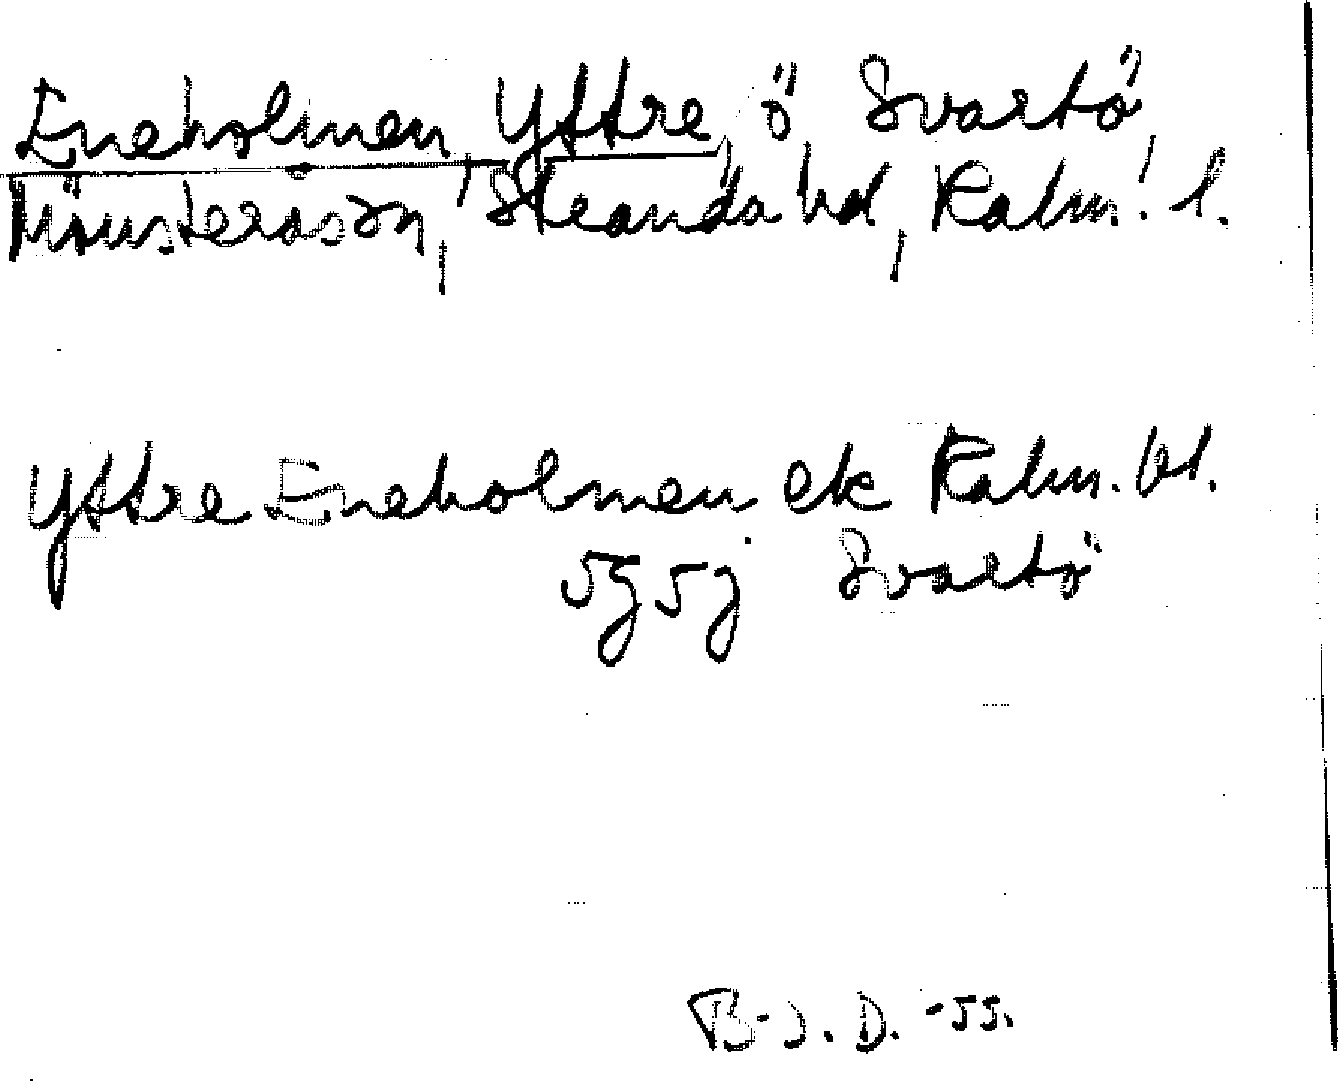 Eneholmen, Yttre, ö, Svartö,
Mönsterås sn, Stranda hd, Kalm. l.
Yttre Eneholmen ek Kalm. bl.
5g 5j Svartö
B-J. D. -55.